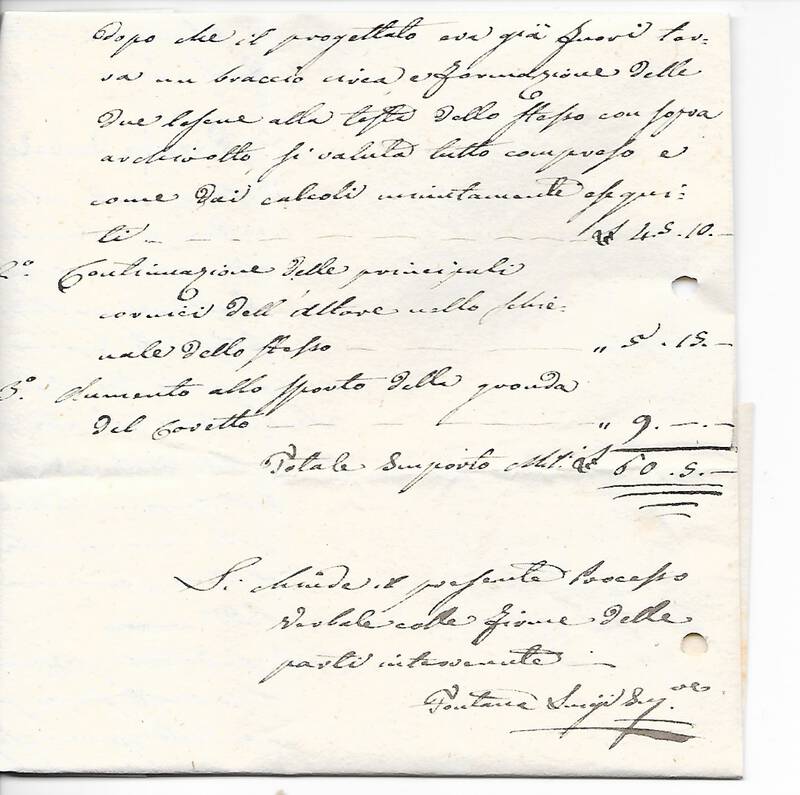 dopo che il progettato era già fuori ter-
ra un braccio circa, e formazione delle
due lesene alla testa dello stesso con sopra
archivolto, si valuta tutto compreso e
come dai calcoli minutamente esegui-
ti - 45.10.-
2°. Continuazione delle principali
cornici dell'Altare nello schie-
nale dello stesso - „ 5.15.-
3°. Aumento allo sporto della gronda
del Coretto - „ 9.-.-
Totale Importo Mil. 60.5.-
Si chiude il presente Processo
Verbale colle firme delle
parti intervenute.-
Fontana Luigi Ing.re